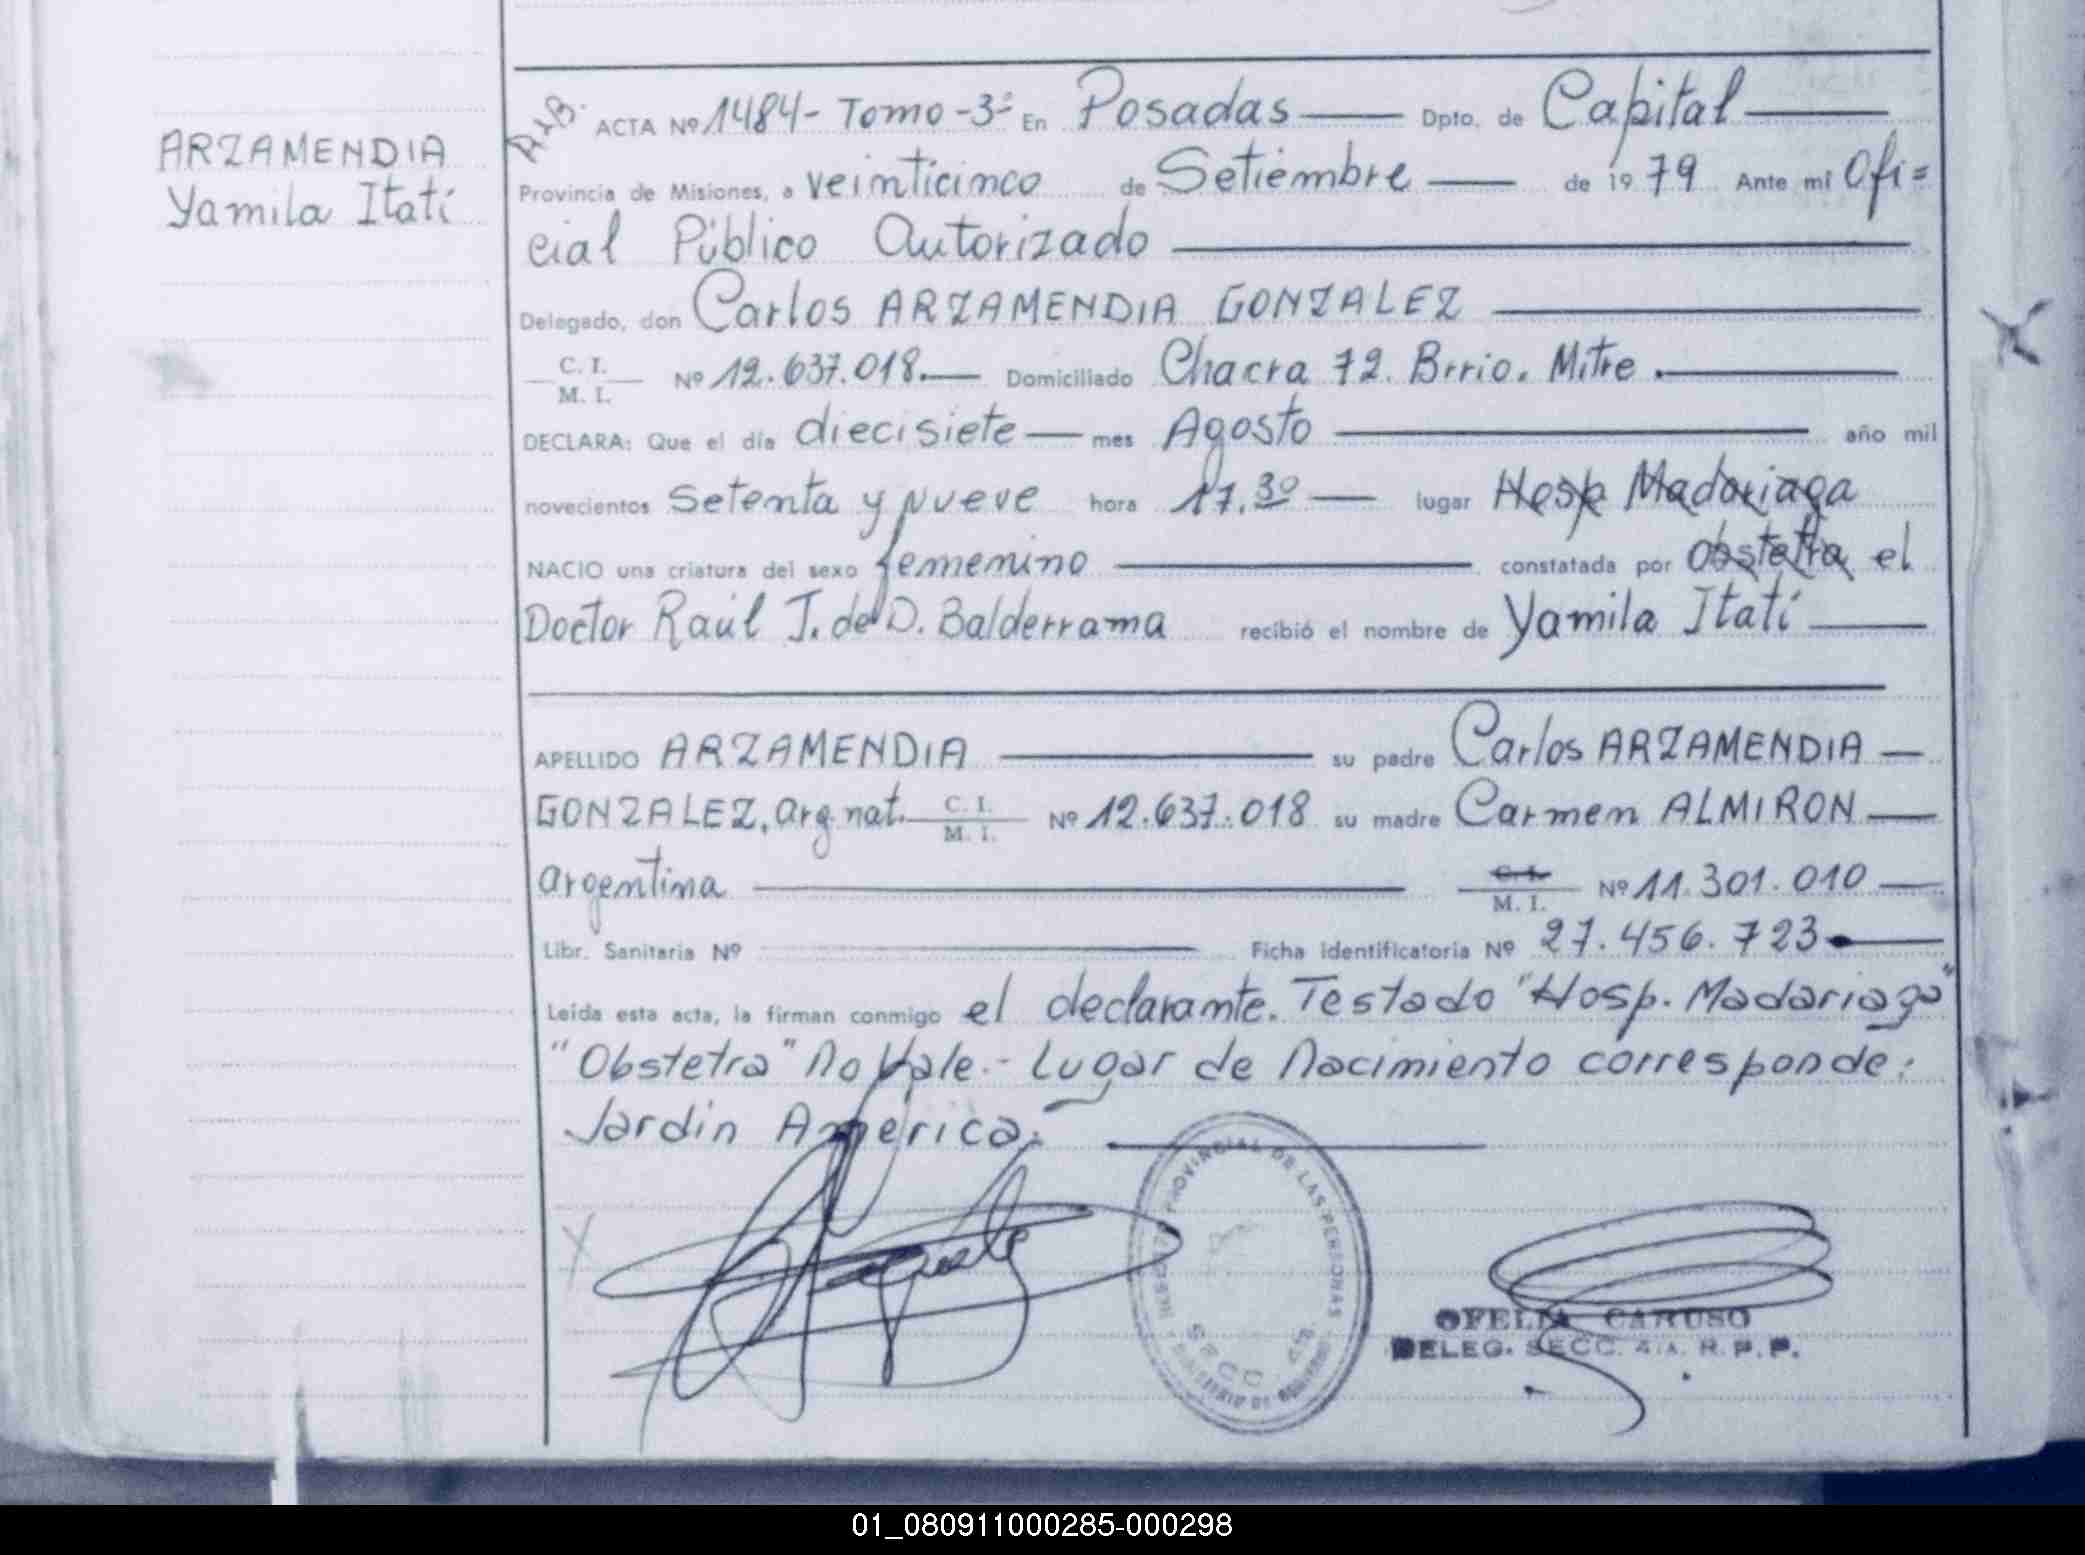 ARZAMENDIA
Yamila Itatí
ACTA Nº 1484- Tomo -3º En Posadas Dpto. de Capital
Provincia de Misiones, a veinticinco de Setiembre de 1979 Ante mi Ofi=
cial Público Autorizado
Delegado, don Carlos ARZAMENDIA GONZALEZ
C. I.
M. I. Nº 12.637.018.— Domiciliado Chacra 72. Brrio. Mitre.
DECLARA: Que el día diecisiete — mes Agosto año mil
novecientos setenta y nueve hora 17.30 — lugar Hosp Madariaga
NACIO una criatura del sexo femenino constatada por obstetra el
Doctor Raúl J. de D. Balderrama recibió el nombre de Yamila Itatí
APELLIDO ARZAMENDIA su padre Carlos ARZAMENDIA —
GONZALEZ, arg. nat. C. I. M. I. Nº 12.637.018 su madre Carmen ALMIRON
argentina C. I. M. I. Nº 11.301.010 —
Libr. Sanitaria Nº Ficha identificatoria Nº 27.456.723
Leída esta acta, la firman conmigo el declarante. Testado "Hosp. Madariaga"
"Obstetra" No Vale.- Lugar de Nacimiento corresponde:
Jardin America.-
PROVINCIAL DE LAS PERSONAS
SECC. 4ta.
OFELIA CARUSO
DELEG. SECC. 4ta. R.P.P.
01_080911000285-000298